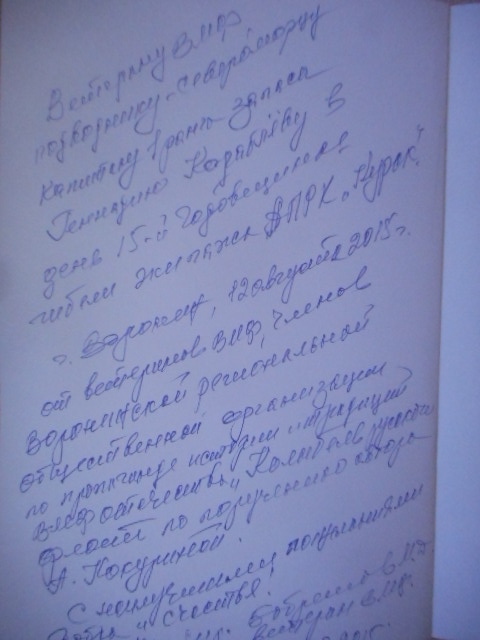 Ветерану ВМФ
подводнику-североморцу
капитану 1 ранга запаса
Геннадию
день 15-й годовщины
гибели экипажа АПРК „Курск"
г. Воронеж, 12 августа 2015 г.
от ветеранов ВМФ, членов
Воронежской региональной
общественной организации
по пропаганде истории и традиций
флота по поручению автора
А.
С наилучшими пожеланиями
добра и счастья!
ветеран ВМФ